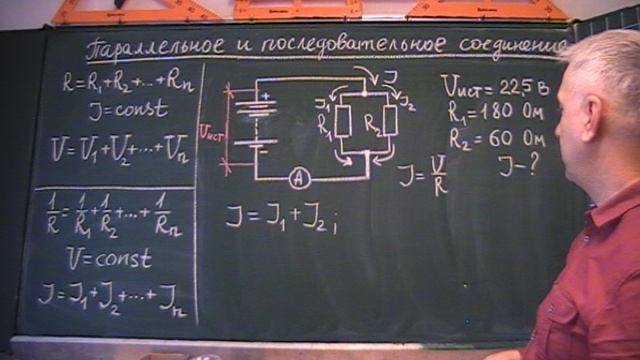 Параллельное и последовательное соединение
R = R₁ + R₂ + ... + Rₙ
J = const
U = U₁ + U₂ + ... + Uₙ
1/R = 1/R₁ + 1/R₂ + ... + 1/Rₙ
U = const
J = J₁ + J₂ + ... + Jₙ
Uист
+
-
A
J
J₁
J₂
R₁
R₂
J = U/R
J = J₁ + J₂ ;
Uист = 225 В
R₁ = 180 Ом
R₂ = 60 Ом
J - ?